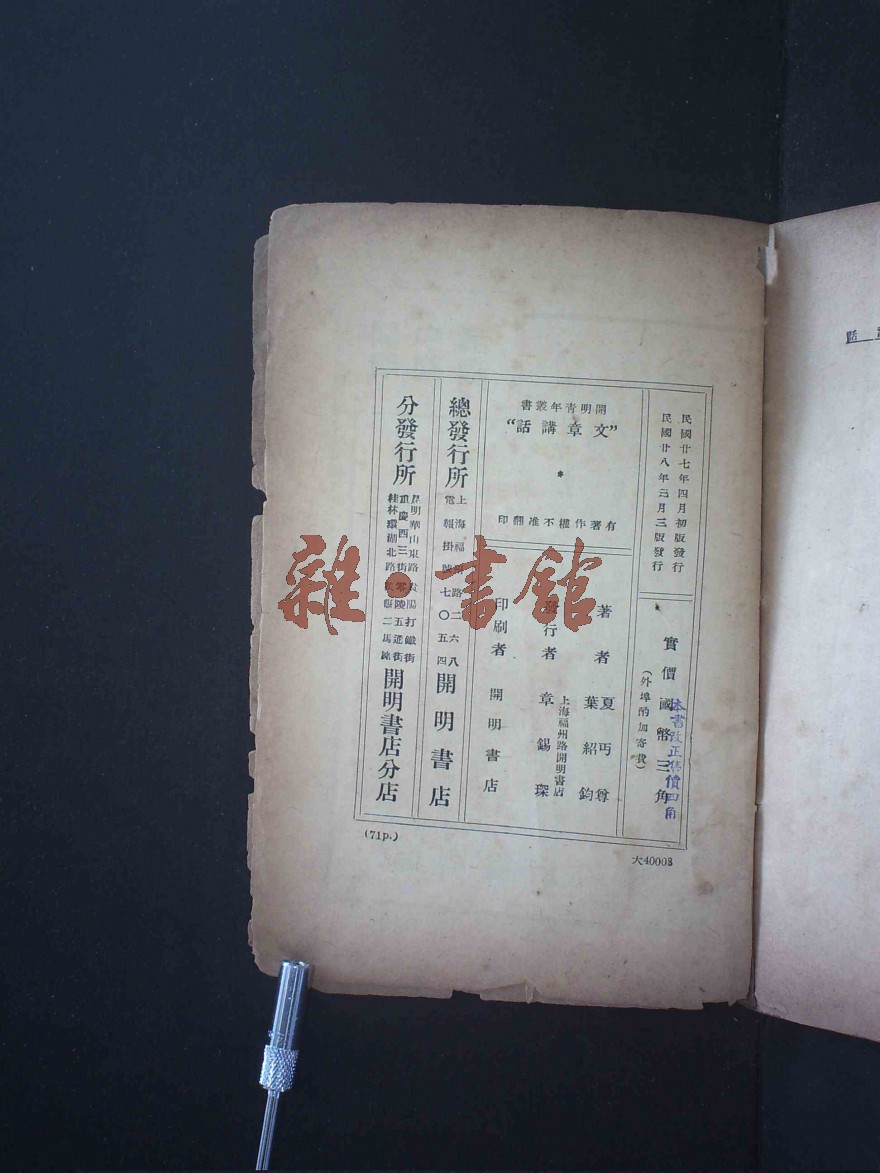 民國廿七年四月初版發行
民國廿八年三月三版發行
實價國幣三角
(外埠酌加寄費)
本書改正售價四角
開明青年叢書
“文章講話”
有著作權不准翻印
著者 夏丏尊
葉紹鈞
發行者 章錫琛
上海福州路開明書店
印刷者 開明書店
總發行所
上海福州路二六八
電報掛號七〇五四
開明書店
分發行所
昆明華山東路 貴陽打鐵街
重慶西三街 零陵五通街
桂林環湖北路
開明書店分店
(71p.)
大40008
話
雜·書館